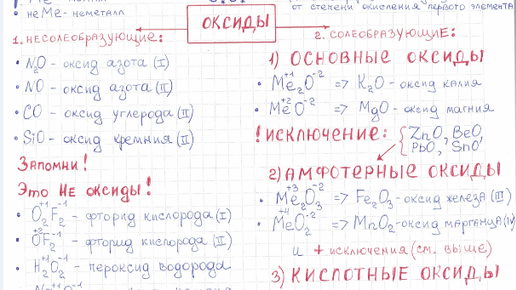 неМе - неметалл
от степени окисления первого элемента
ОКСИДЫ
1. НЕСОЛЕОБРАЗУЮЩИЕ:
• N₂O - оксид азота (I)
• NO - оксид азота (II)
• CO - оксид углерода (II)
• SiO - оксид кремния (II)
ЗАПОМНИ!
Это НЕ оксиды!
• O₂⁺¹F₂⁻¹ - фторид кислорода (I)
• O⁺²F₂⁻¹ - фторид кислорода (II)
• H₂⁺¹O₂⁻¹ - пероксид водорода
2. СОЛЕОБРАЗУЮЩИЕ:
1) ОСНОВНЫЕ ОКСИДЫ
• Me₂⁺¹O⁻² => K₂O - оксид калия
• Me⁺²O⁻² => MgO - оксид магния
! ИСКЛЮЧЕНИЕ: { ZnO, BeO,
PbO, SnO
2) АМФОТЕРНЫЕ ОКСИДЫ
• Me₂⁺³O₃⁻² => Fe₂O₃ - оксид железа (III)
• Me⁺⁴O₂⁻² => MnO₂ - оксид марганца (IV)
и + исключения (см. выше)
3) КИСЛОТНЫЕ ОКСИДЫ